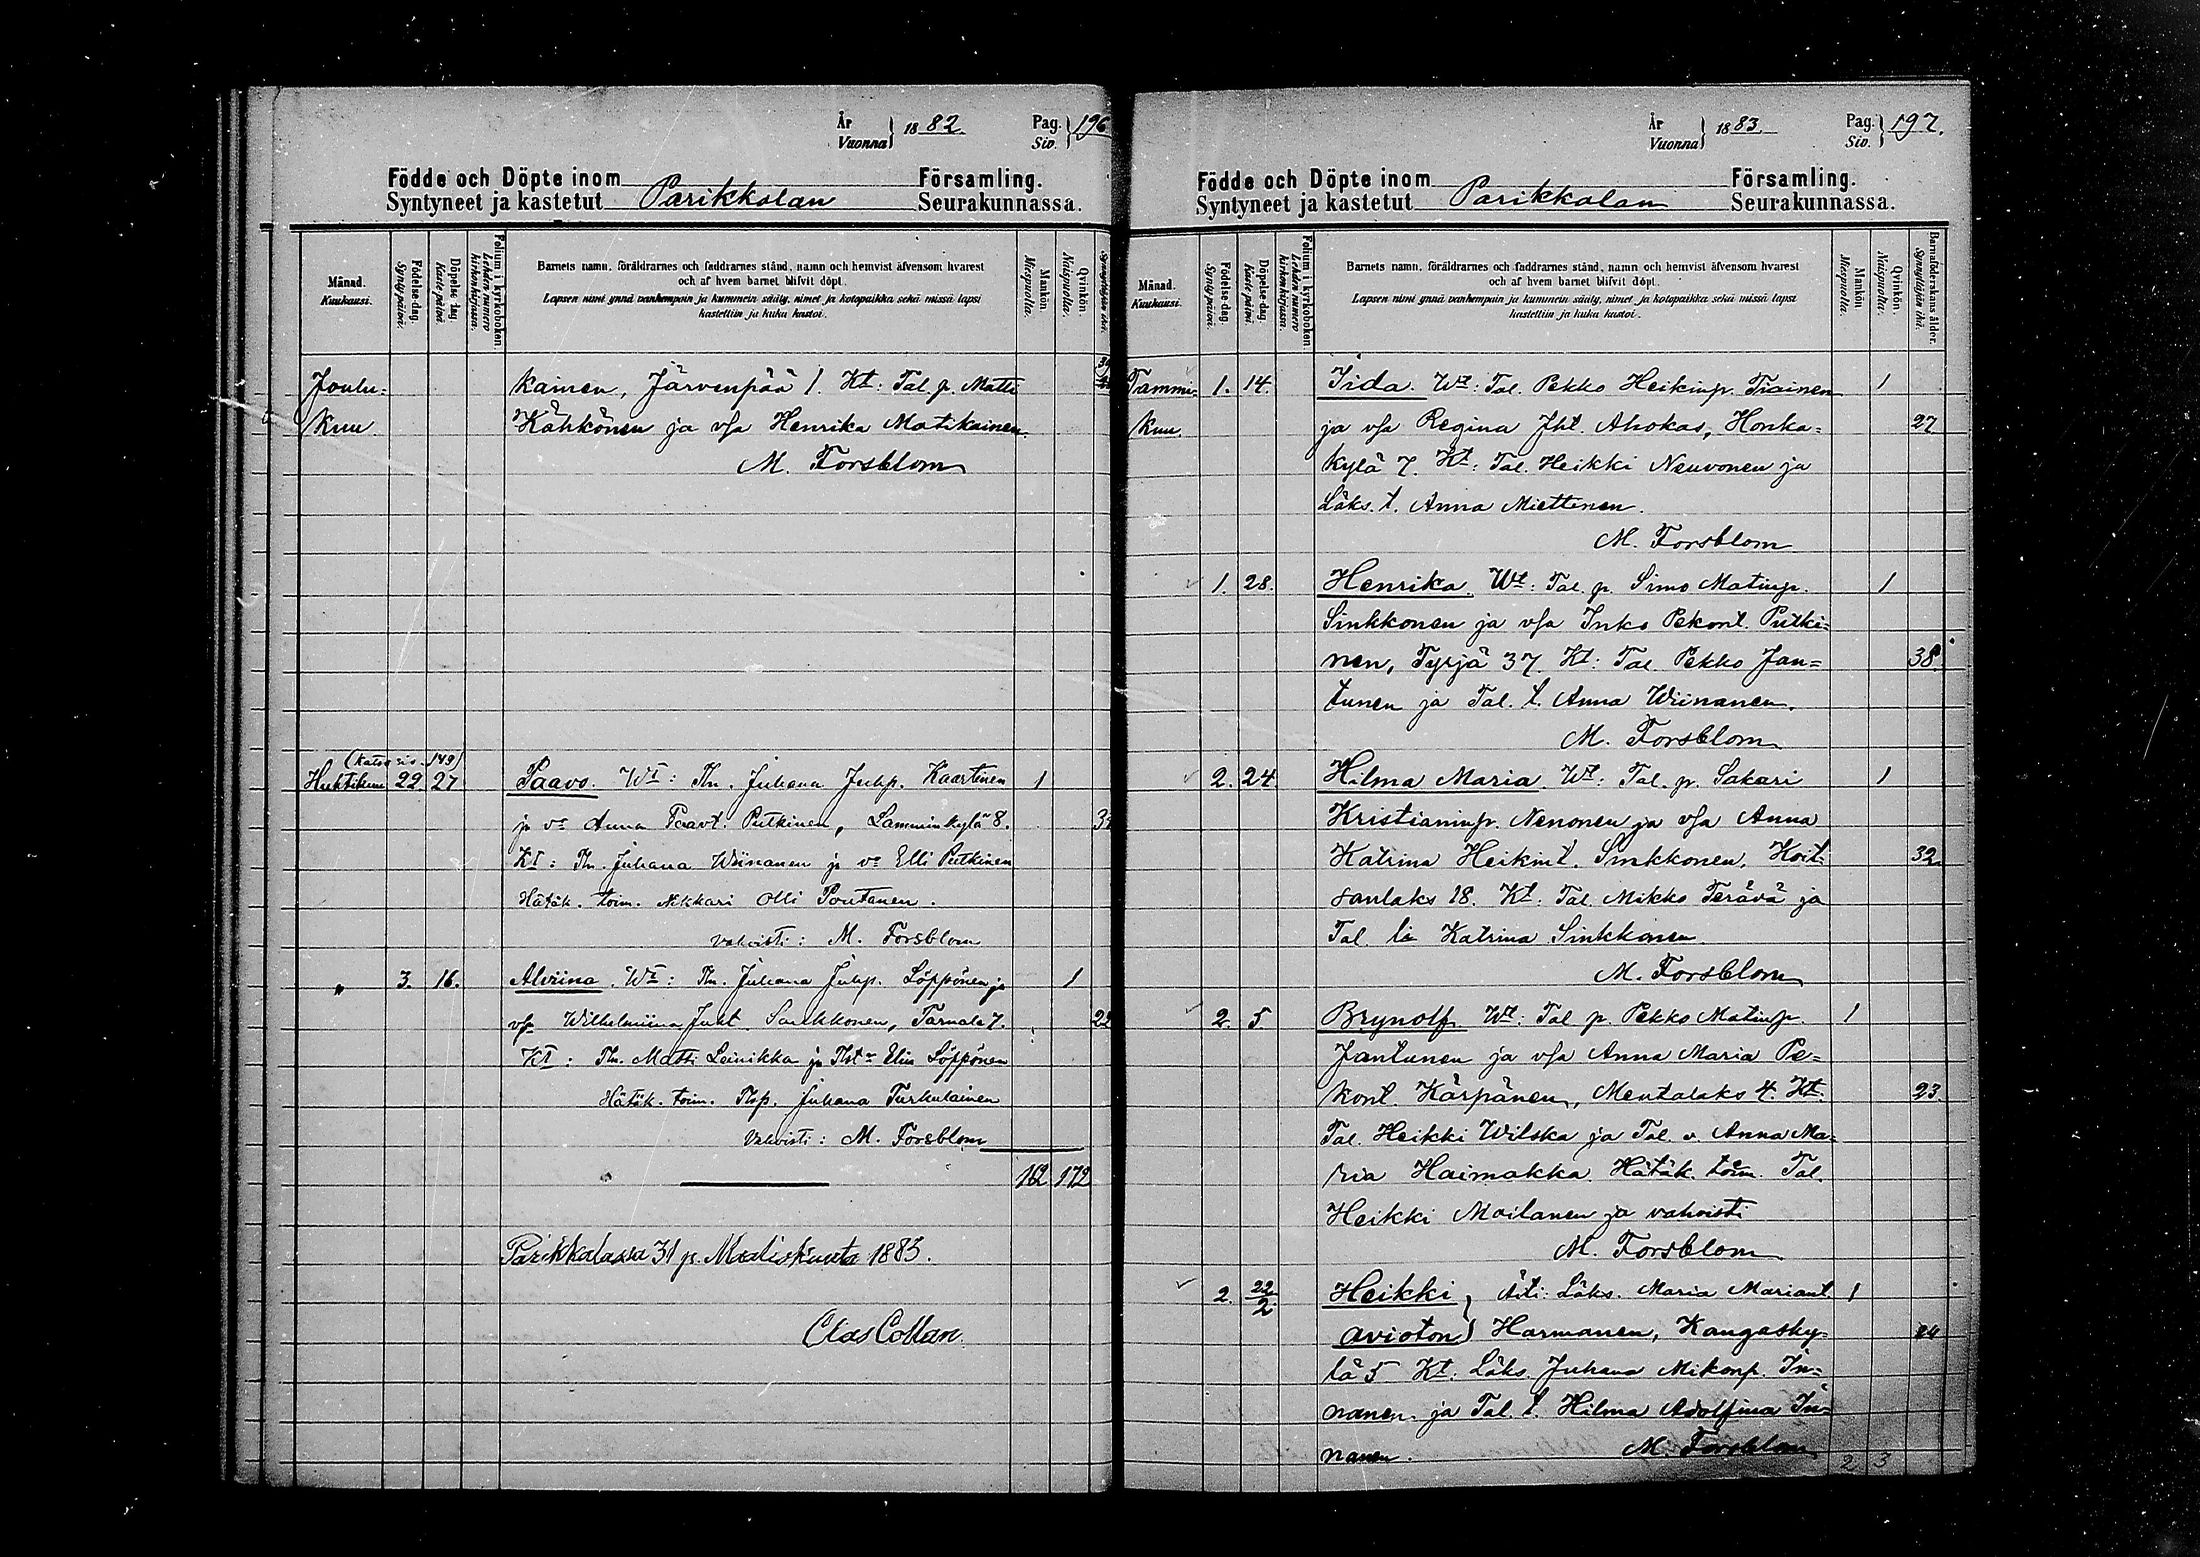 År
Vuonna } 1882. Pag.
Siv. } 196
Födde och Döpte inom Församling.
Syntyneet ja kastetut Parikkalan Seurakunnassa.
Månad.
Kuukausi.
Födelse-dag.
Syntypäivä.
Döpelse-dag
Kaste päivä.
Folium i kyrkoboken.
Lehden numero
kirkonkirjassa.
Barnets namn, föräldrarnes och faddrarnes stånd, namn och hemvist äfvensom hvarest
och af hvem barnet blifvit döpt.
Lapsen nimi ynnä vanhempain ja kummein sääty, nimet ja kotopaikka sekä missä lapsi
kastettiin ja kuka kastoi.
Mankön
Miespuolta.
Qvinkön
Naispuolta.
Joulu= kainen, Järvenpää 1. Kt: Tal. p. Matti
kuu Kähkönen ja vsa Henrika Matikainen.
M. Forsblom
(katso siv. 149)
Huhtikuu 22. 27 Paavo. Wt: Tln. Juhana Juhp. Kaartinen 1
ja vo Anna Paavt. Putkinen, Lamminkylä 8.
Kt: Tln. Juhana Wiinanen ja vo Elli Putkinen
Hätäk. toim. Nikkari Olli Poutanen.
vahvisti: M. Forsblom
" 3. 16. Alviina. Wt: Tln. Juhana Juhp. Löppönen ja 1
vsa Wilhelmiina Juht. Sinkkonen, Tarnala 7. 22
Kt: Tln. Matti Leinikka ja Elin Löppönen
Hätäk. toim. Juhana Turkulainen
Vahvisti: M. Forsblom
162 172
Parikkalassa 31 p. Maaliskuuta 1883.
Clas Collan.
År
Vuonna } 1883. Pag.
Siv. } 197.
Födde och Döpte inom Församling.
Syntyneet ja kastetut Parikkalan Seurakunnassa.
Månad.
Kuukausi.
Födelse-dag.
Syntypäivä.
Döpelse-dag
Kaste päivä.
Folium i kyrkoboken.
Lehden numero
kirkonkirjassa.
Barnets namn, föräldrarnes och faddrarnes stånd, namn och hemvist äfvensom hvarest
och af hvem barnet blifvit döpt.
Lapsen nimi ynnä vanhempain ja kummein sääty, nimet ja kotopaikka sekä missä lapsi
kastettiin ja kuka kastoi.
Mankön
Miespuolta.
Qvinkön
Naispuolta.
Barnaföderskans ålder.
Synnyttäjän ikä.
Tammi= 1. 14. Iida. Wt: Tal. Pekko Heikinp. Tiainen 1
kuu. ja vsa Regina Jht. Ahokas, Honka= 27
kylä 7. Kt: Tal. Heikki Neuvonen ja
Läks. t. Anna Miettinen.
M. Forsblom
1. 28. Henrika. Wt: Tal. p. Simo Matinp. 1
Sinkkonen ja vsa Inko Pekont. Putki=
nen, Tyrjä 37. Kt: Tal. Pekko Jan= 38.
tunen ja Tal. t. Anna Wiinanen.
M. Forsblom
2. 24. Hilma Maria. Wt: Tal. p. Sakari 1
Kristianinp. Nenonen ja vsa Anna
Katrina Heikint. Sinkkonen, Koit= 32
sanlaks 18. Kt: Tal. Mikko Terävä ja
Tal. Katrina Sinkkonen.
M. Forsblom
2. 5 Brynolf. Wt: Tal p. Pekko Matinp. 1
Jantunen ja vsa Anna Maria Pe=
kont. Kärpänen, Mentalaks 4. Kt: 23.
Tal. Heikki Wilska ja Tal. v. Anna Ma=
ria Haimakka. Hätäk. toim. Tal.
Heikki Moilanen ja vahvisti
M. Forsblom
2. 22/2 Heikki } Äiti: Läks. Maria Mariant 1
avioton } Harmanen, Kangasky= 24
lä 5 Kt: Läks. Juhana Mikonp. In=
nanen ja Tal. t. Hilma Adolfina In=
nanen. M. Forsblom
2 3